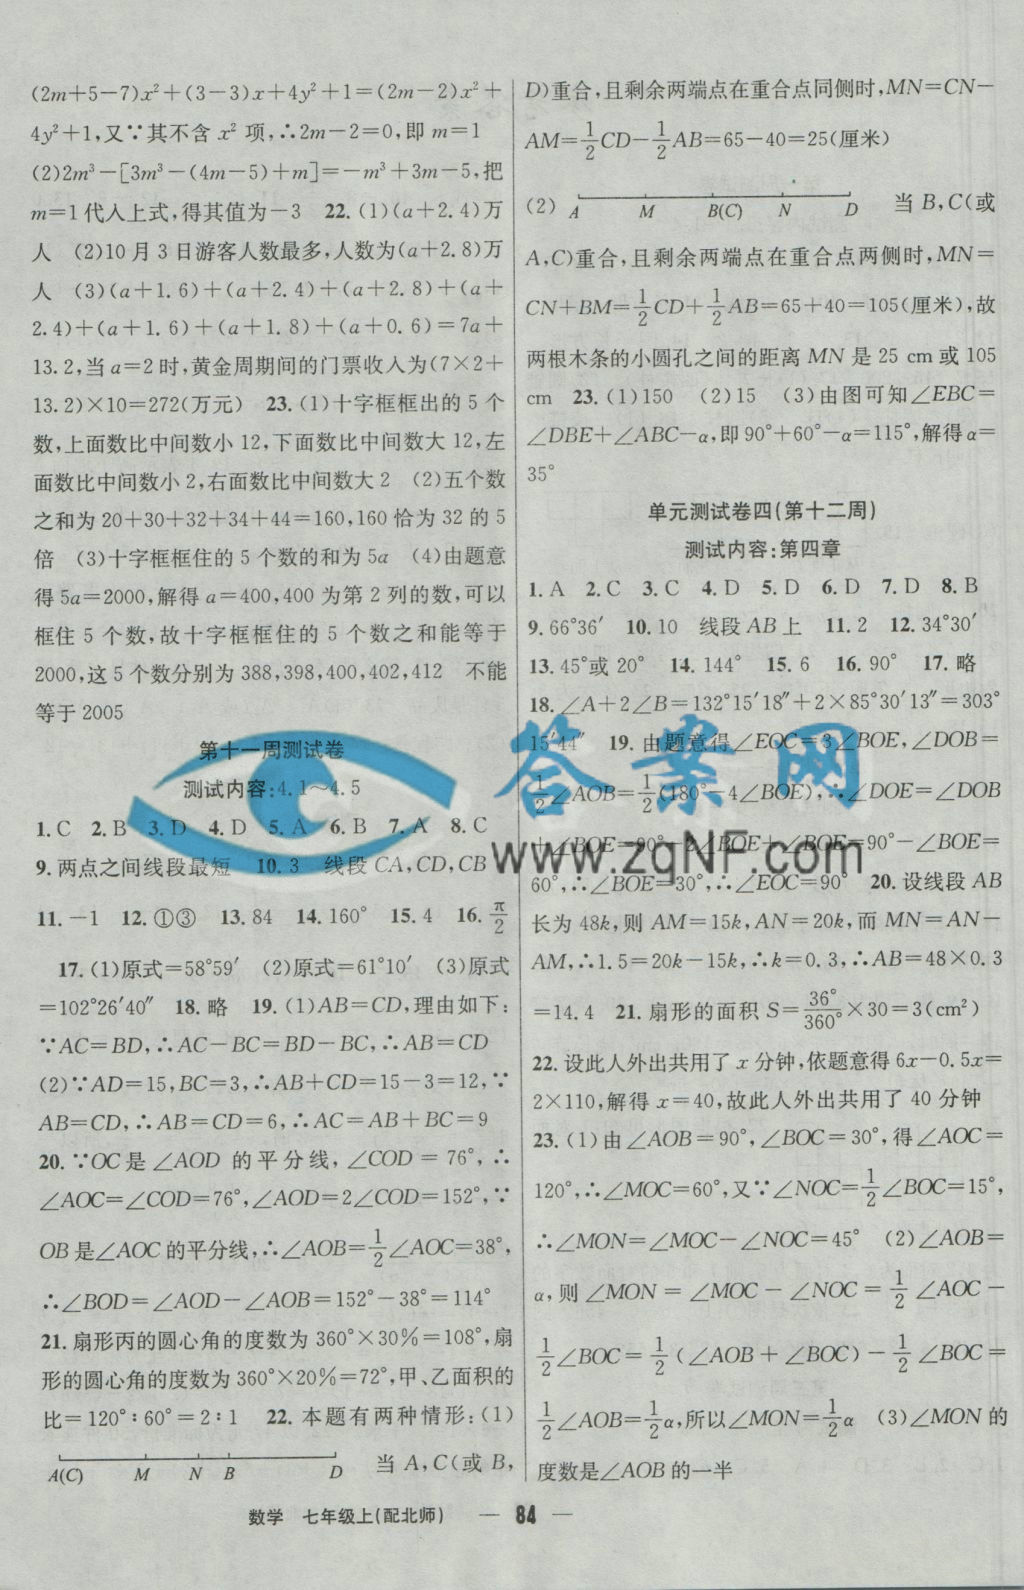 (2m+5−7)x²+(3−3)x+4y²+1=(2m−2)x²+
4y²+1,又∵其不含 x² 项,∴2m−2=0,即 m=1
(2)2m³−[3m³−(4m−5)+m]=−m³+3m−5,把
m=1代人上式,得其值为−3 22.(1)(a+2.4)万
人 (2)10月3日游客人数最多,人数为(a+2.8)万
人 (3)(a+1.6)+(a+2.4)+(a+2.8)+(a+
2.4)+(a+1.6)+(a+1.8)+(a+0.6)=7a+
13.2,当a=2时,黄金周期间的门票收入为(7×2+
13.2)×10=272(万元) 23.(1)十字框框出的5个
数,上面数比中间数小12,下面数比中间数大12,左
面数比中间数小2,右面数比中间数大2 (2)五个数
之和为20+30+32+34+44=160,160恰为32的5
倍 (3)十字框框住的5个数的和为5a (4)由题意
得5a=2000,解得a=400,400为第2列的数,可以
框住5个数,故十字框框住的5个数之和能等于
2000,这5个数分别为388,398,400,402,412 不能
等于2005
第十一周测试卷
测试内容:4.1~4.5
1.C 2.B 3.D 4.D 5.A 6.B 7.A 8.C
9.两点之间线段最短 10.3 线段CA,CD,CB
11.−1 12.①③ 13.84 14.160° 15.4 16.π/2
17.(1)原式=58°59′ (2)原式=61°10′ (3)原式
=102°26′40″ 18.略 19.(1)AB=CD,理由如下:
∵AC=BD,∴AC−BC=BD−BC,∴AB=CD
(2)∵AD=15,BC=3,∴AB+CD=15−3=12,∵
AB=CD,∴AB=CD=6,∴AC=AB+BC=9
20.∵OC是∠AOD的平分线,∠COD=76°,∴
∠AOC=∠COD=76°,∠AOD=2∠COD=152°,∵
OB是∠AOC的平分线,∴∠AOB=1/2∠AOC=38°,
∴∠BOD=∠AOD−∠AOB=152°−38°=114°
21.扇形丙的圆心角的度数为360°×30%=108°,扇
形的圆心角的度数为360°×20%=72°,甲、乙面积的
比=120°∶60°=2∶1 22.本题有两种情形:(1)
A(C) M N B D 当A,C(或B,
D)重合,且剩余两端点在重合点同侧时,MN=CN−
AM=1/2CD−1/2AB=65−40=25(厘米)
(2) A M B(C) N D 当B,C(或
A,C)重合,且剩余两端点在重合点两侧时,MN=
CN+BM=1/2CD+1/2AB=65+40=105(厘米),故
两根木条的小圆孔之间的距离MN是25 cm或105
cm 23.(1)150 (2)15 (3)由图可知∠EBC=
∠DBE+∠ABC−α,即90°+60°−α=115°,解得α=
35°
单元测试卷四(第十二周)
测试内容:第四章
1.A 2.C 3.C 4.D 5.D 6.D 7.D 8.B
9.66°36′ 10.10 线段AB上 11.2 12.34°30′
13.45°或20° 14.144° 15.6 16.90° 17.略
18.∠A+2∠B=132°15′18″+2×85°30′13″=303°
15′44″ 19.由题意得∠EOC=3∠BOE,∠DOB=
1/2∠AOB=1/2(180°−4∠BOE),∴∠DOE=∠DOB
+∠BOE=90°−2∠BOE+∠BOE=90°−∠BOE=
60°,∴∠BOE=30°,∴∠EOC=90° 20.设线段AB
长为48k,则AM=15k,AN=20k,而MN=AN−
AM,∴1.5=20k−15k,∴k=0.3,∴AB=48×0.3
=14.4 21.扇形的面积S=36°/360°×30=3(cm²)
22.设此人外出共用了x分钟,依题意得6x−0.5x=
2×110,解得x=40,故此人外出共用了40分钟
23.(1)由∠AOB=90°,∠BOC=30°,得∠AOC=
120°,∴∠MOC=60°,又∵∠NOC=1/2∠BOC=15°,
∴∠MON=∠MOC−∠NOC=45° (2)∠AOB=
α,则∠MON=∠MOC−∠NOC=1/2∠AOC−
1/2∠BOC=1/2(∠AOB+∠BOC)−1/2∠BOC=
1/2∠AOB=1/2α,所以∠MON=1/2α (3)∠MON的
度数是∠AOB的一半
答案网
www.zqNF.com
数学 七年级上(配北师) — 84 —